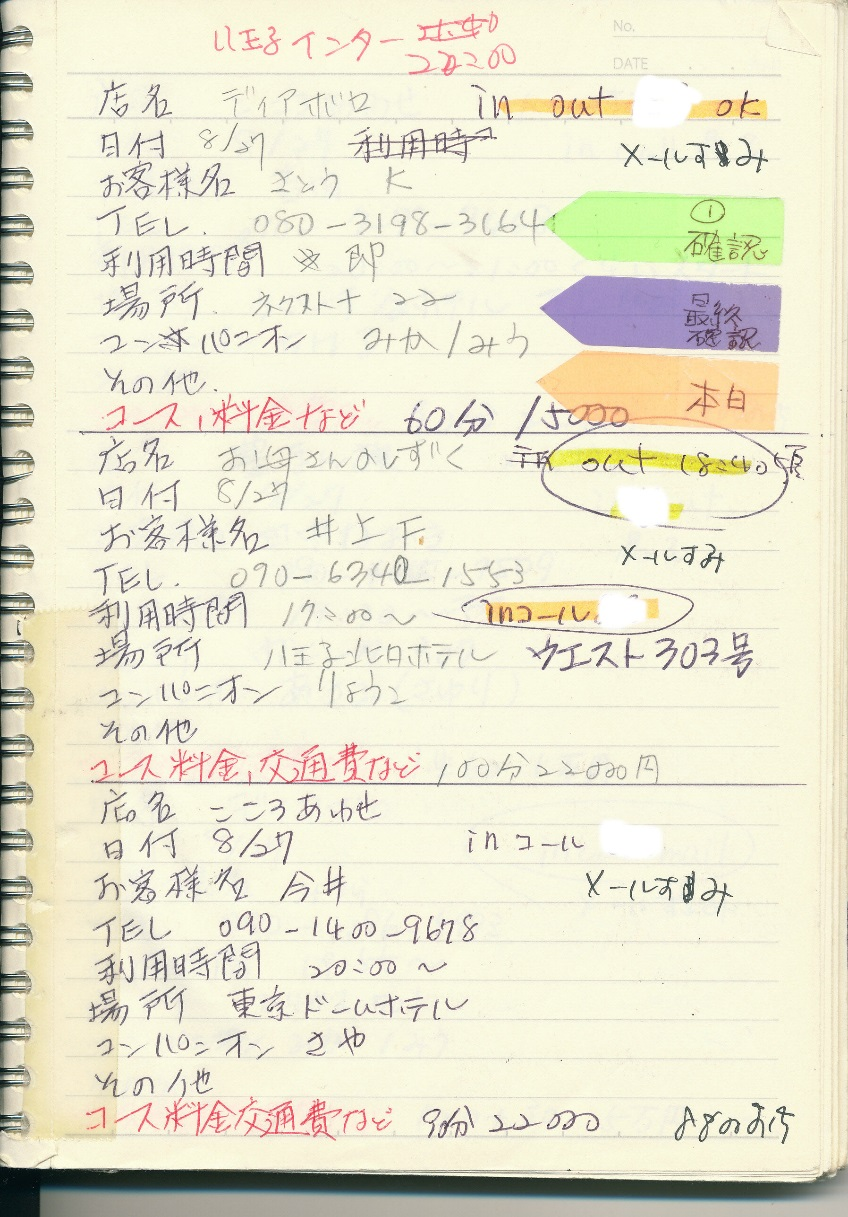 八王子インター
22:00
No.
DATE
店名 ディアボロ in out ok
日付 8/27 利用時 メールすみ
お客様名 さとう K
TEL. 080-3198-3164 ① 確認
利用時間 ※ 即
場所. ネクスト+ 22
コンパニオン みか/みう 最終確認
その他.
本日
コース,料金など 60分 15000
店名 お母さんのしずく out 18:40頃
日付 8/27
お客様名 井上 F. メールすみ
TEL. 090-6340-1553
利用時間 17:00~ inコール
場所 八王子北口ホテル ウエスト303号
コンパニオン りょうこ
その他
コース料金,交通費など 100分22000円
店名 こころあわせ
日付 8/27 inコール
お客様名 今井 メールすみ
TEL 090-1400-9678
利用時間 20:00~
場所 東京ドームホテル
コンパニオン さや
その他
コース料金交通費など 90分 22000